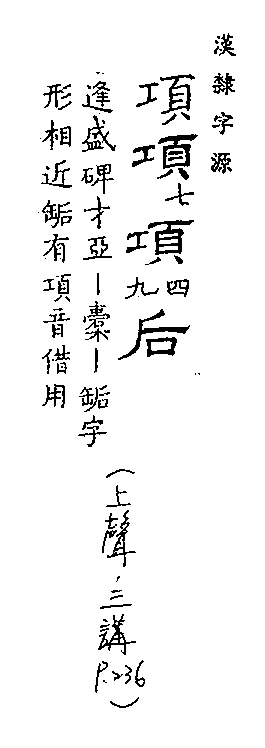 漢隸字源
項項七項四九后
逢盛碑才亞丨橐丨缿字
形相近缿有項音借用
(上聲,三講 P.236)